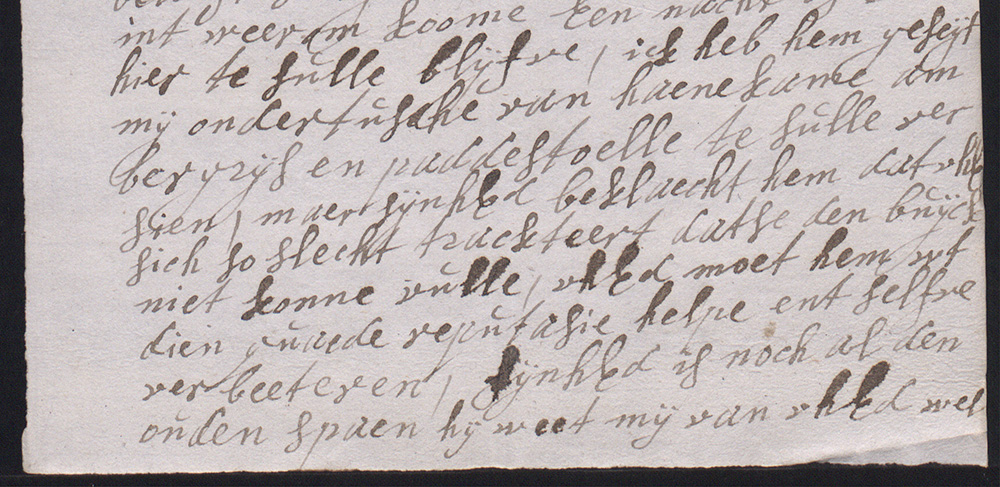 int weerom koome een nacht
hier te sulle blyfve, ick heb hem geseyt
mÿ ondertusche van haenekame am
bergrys en paddestoelle te sulle ver
sien, maer sÿnhEd beklaecht hem dat vhEd
sich so slecht trackteert datse den buÿck
niet konne vulle, vhEd moet hem wt
dien quaede reputasie helpe ent selfve
verbeeteren, sÿnhEd is noch al den
ouden spaen hy weet mÿ van vhEd wel